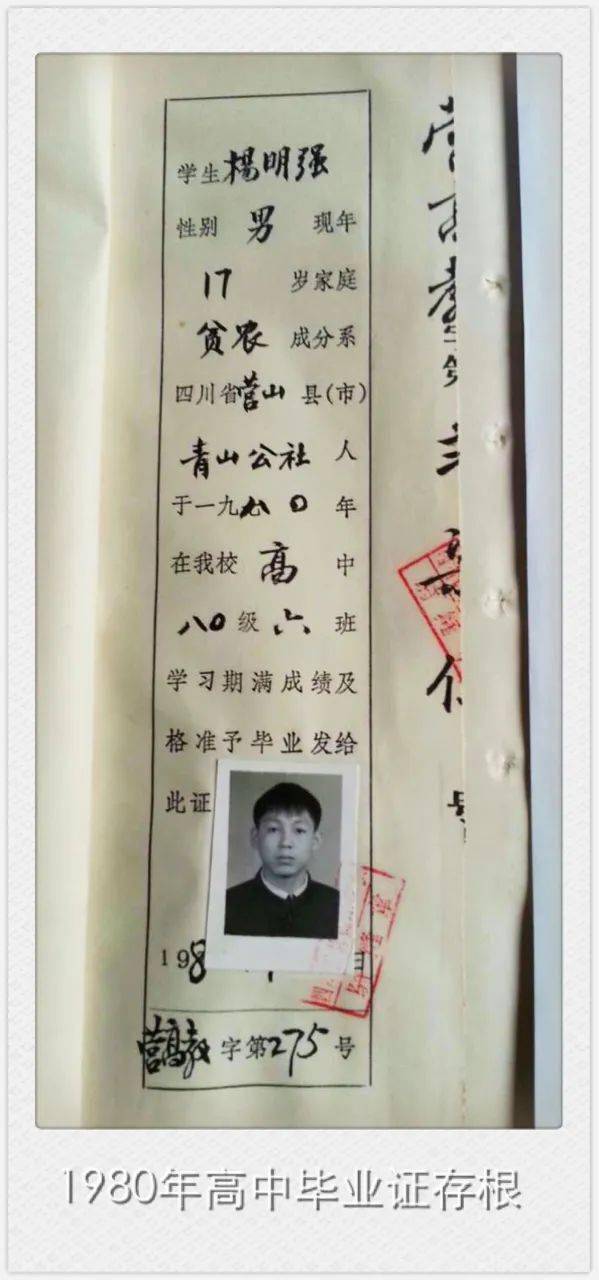 学生楊明强
性别 男 现年
17 岁家庭
贫农 成分系
四川省营山县(市)
青山公社 人
于一九八〇年
在我校 高 中
八〇级六班
学习期满成绩及
格准予毕业发给
此证
198 日
营高教字第275号
营高教字第
1980年高中毕业证存根